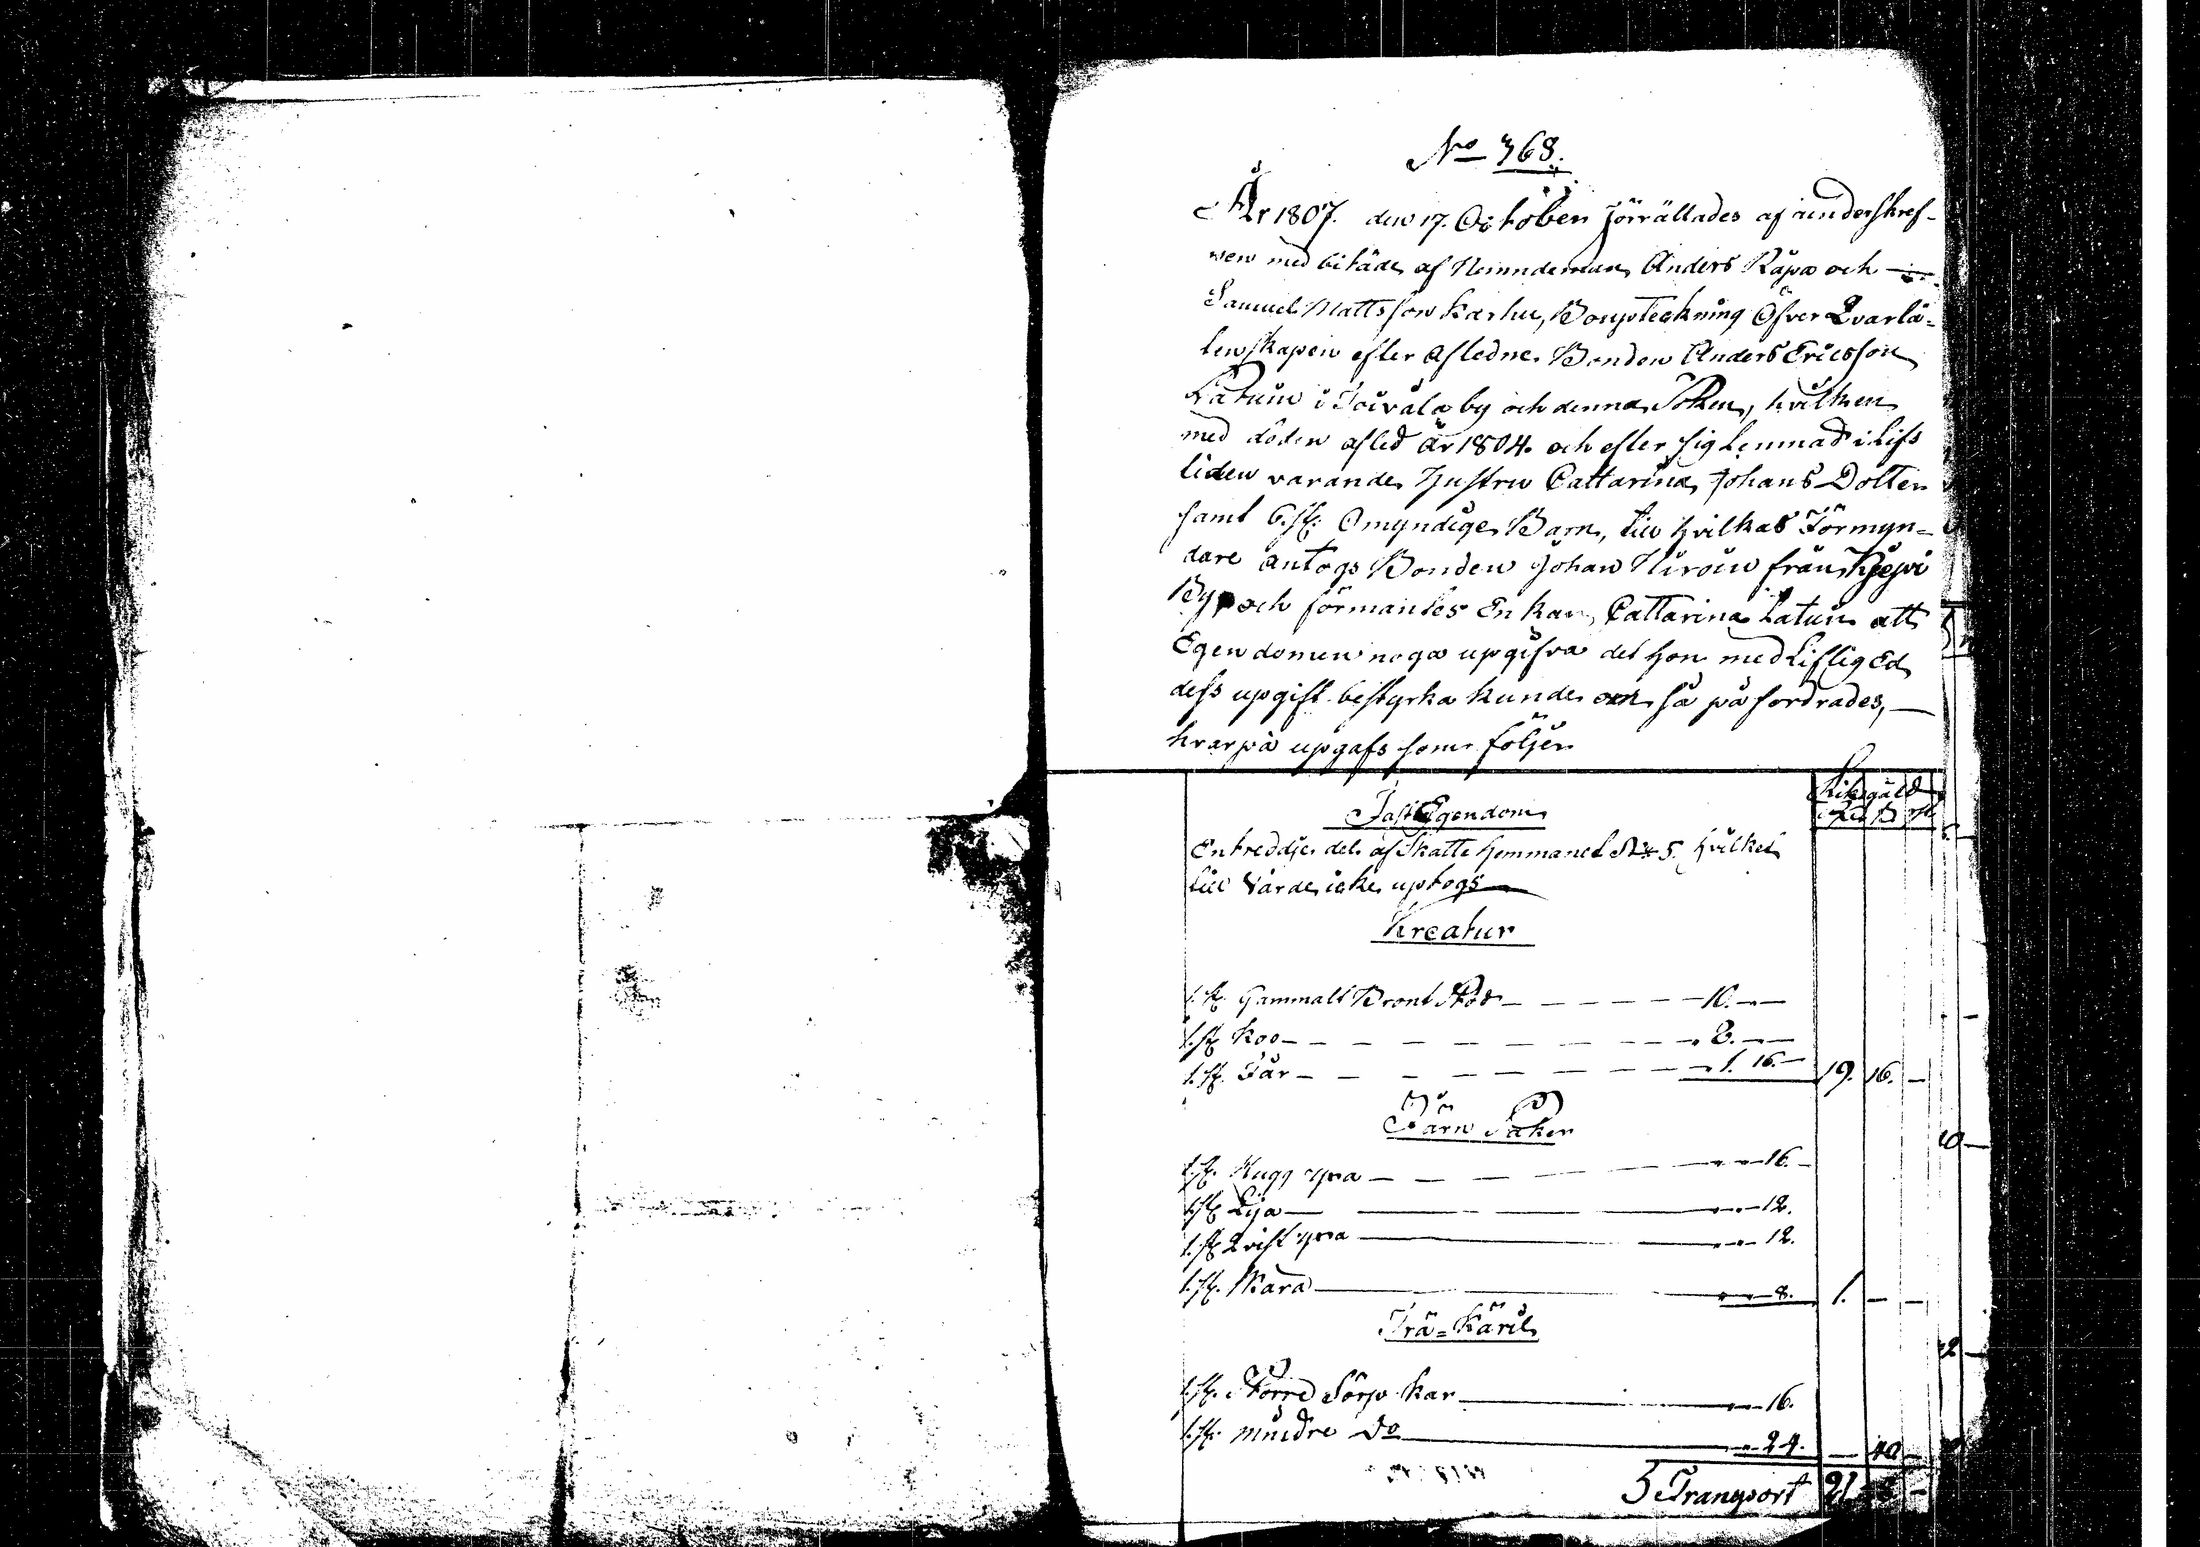 No 368.
År 1807. den 17. October förrättades af underskref-
ven med biträde af Nemndeman Anders Räpa och
Samuel Mattsson Karhu, Bouptekning Öfver Qvarlå-
tenskapen efter Afledne Bonden Anders Ericsson
Latuin i Toivala by och denna Soken, hvilken
med döden afled År 1804. och efter sig Lemnad i Lifs
tiden varande Hustru Cattarina Johans Dotter
samt 6. st: Omyndige Barn, till hvilkas Förmyn-
dare antogs Bonden Johan Hiroin från
By och förmantes Enkan Cattarina Latuin att
Egendomen noga upgifva det hon med Liflig Ed
dess upgift bestyrka kunde om så påfordrades,
hvarpå upgafs som följer
Riksgäld
Fast Egendom Rd ß
En tredje del af Skatte Hemmanet No 5. hvilket
till värde icke uptogs
Kreatur
1. st. Gammalt Bront Stod 10.
1. st. Koo 8.
1. st. Får 1. 16. 19. 16.
Järn Saker
1. st. Hugg yxa 16.
1. st. Lija 12.
1. st. Qvist yxa 12.
1. st. Skära 8. 1.
Trä-Käril
1. st. Större Sörp kar 16.
1. st. mindre Do 24. 40
Transport 21